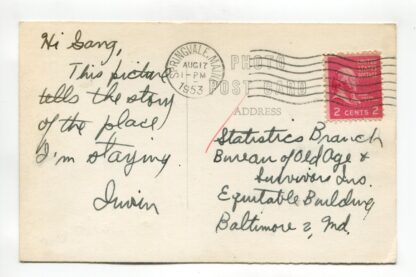 Hi Gang,
This picture
tells the story
of the place
I'm staying
Irwin
SPRINGVALE, MAINE
AUG 17
1-PM
1953
PHOTO
POST CARD
ADDRESS
2 CENTS 2
Statistics Branch
Bureau of Old Age &
Survivors Ins.
Equitable Building
Baltimore 2, Md.